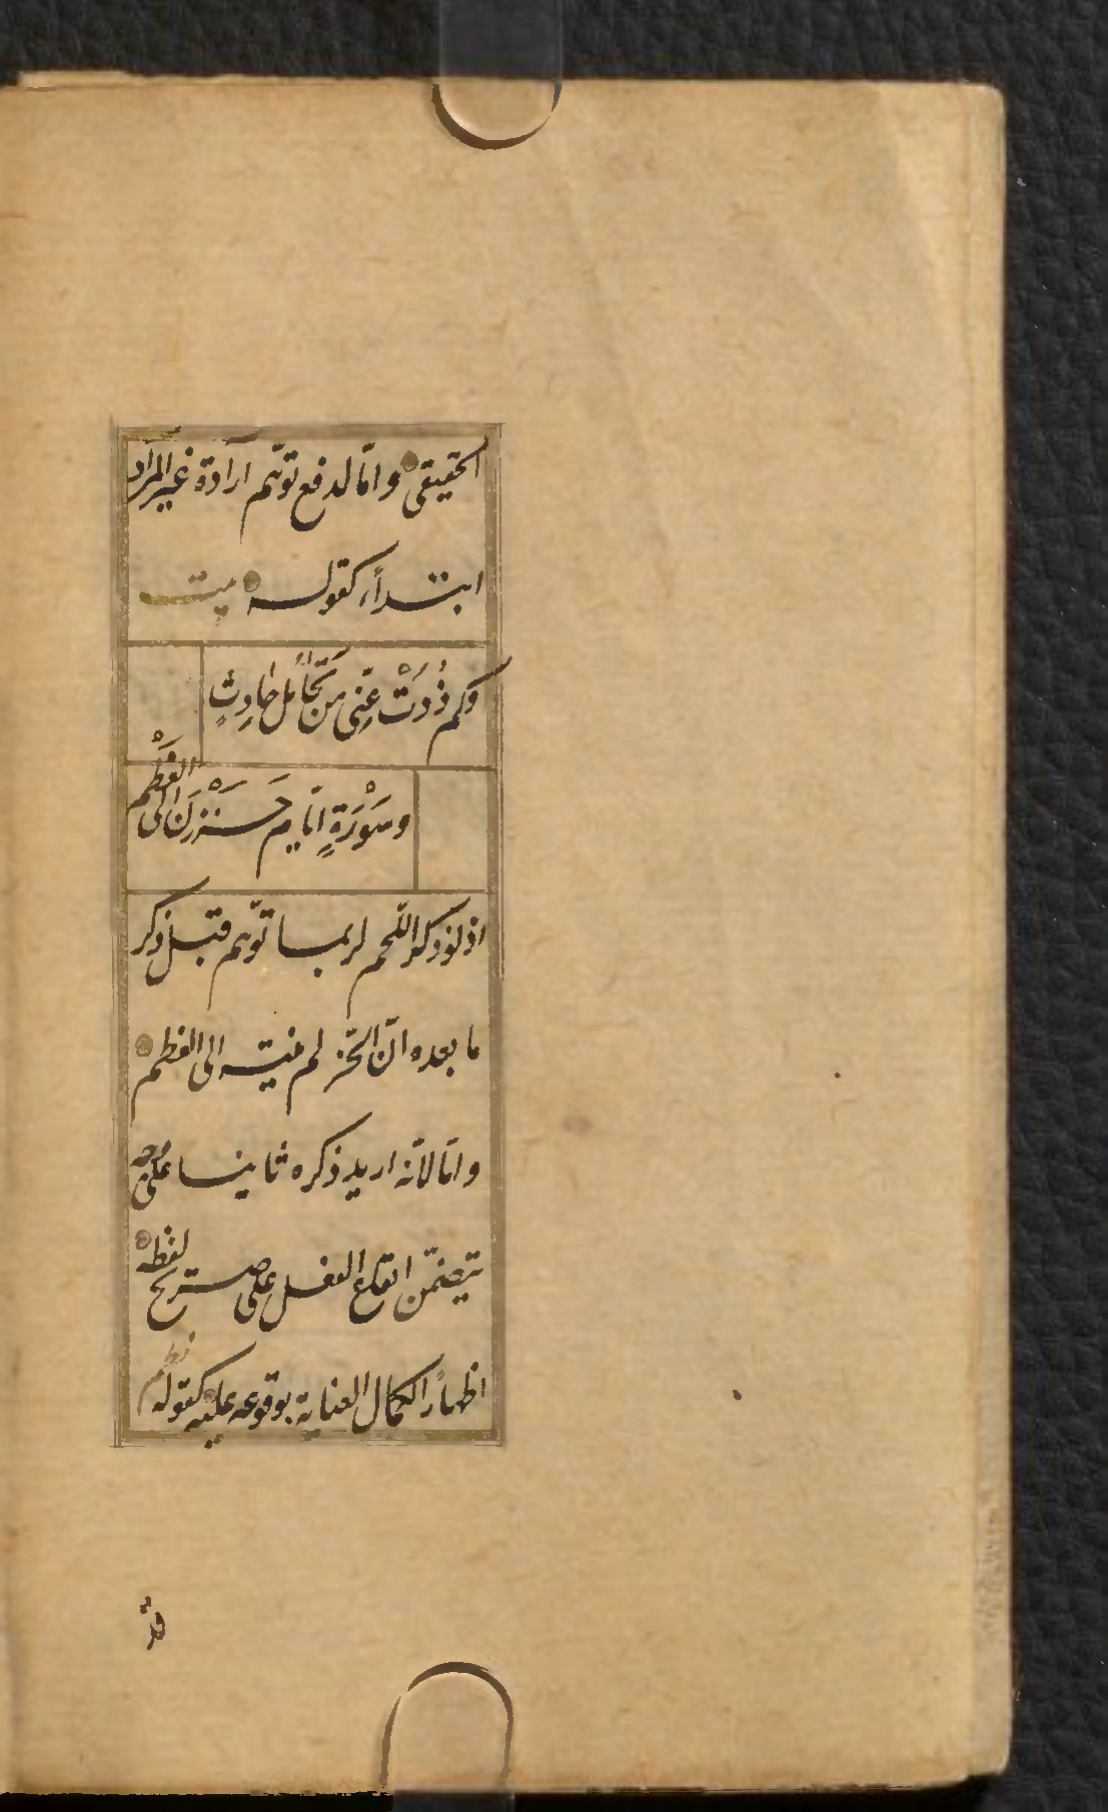 الحقیقی وامّا لدفع توهّم ارادة غیر المراد
ابتداءً کقوله بیت
وکم ذُدتَ عنّی من تحامُل حادثٍ
وسَوْرَةِ ایّام حَزَزْنَ الی العَظْم
اذ لو ذکر اللّحم لربما توّهم قبل ذکر
ما بعده انّ الحزّ لم ینته الی العظم
وامّا لانّه ارید ذکره ثانیا علی وجه
یتضمّن ایقاع الفعل علی صریح لفظه
اظهارًا لکمال العنایة بوقوعه علیه کقوله نظم
قد